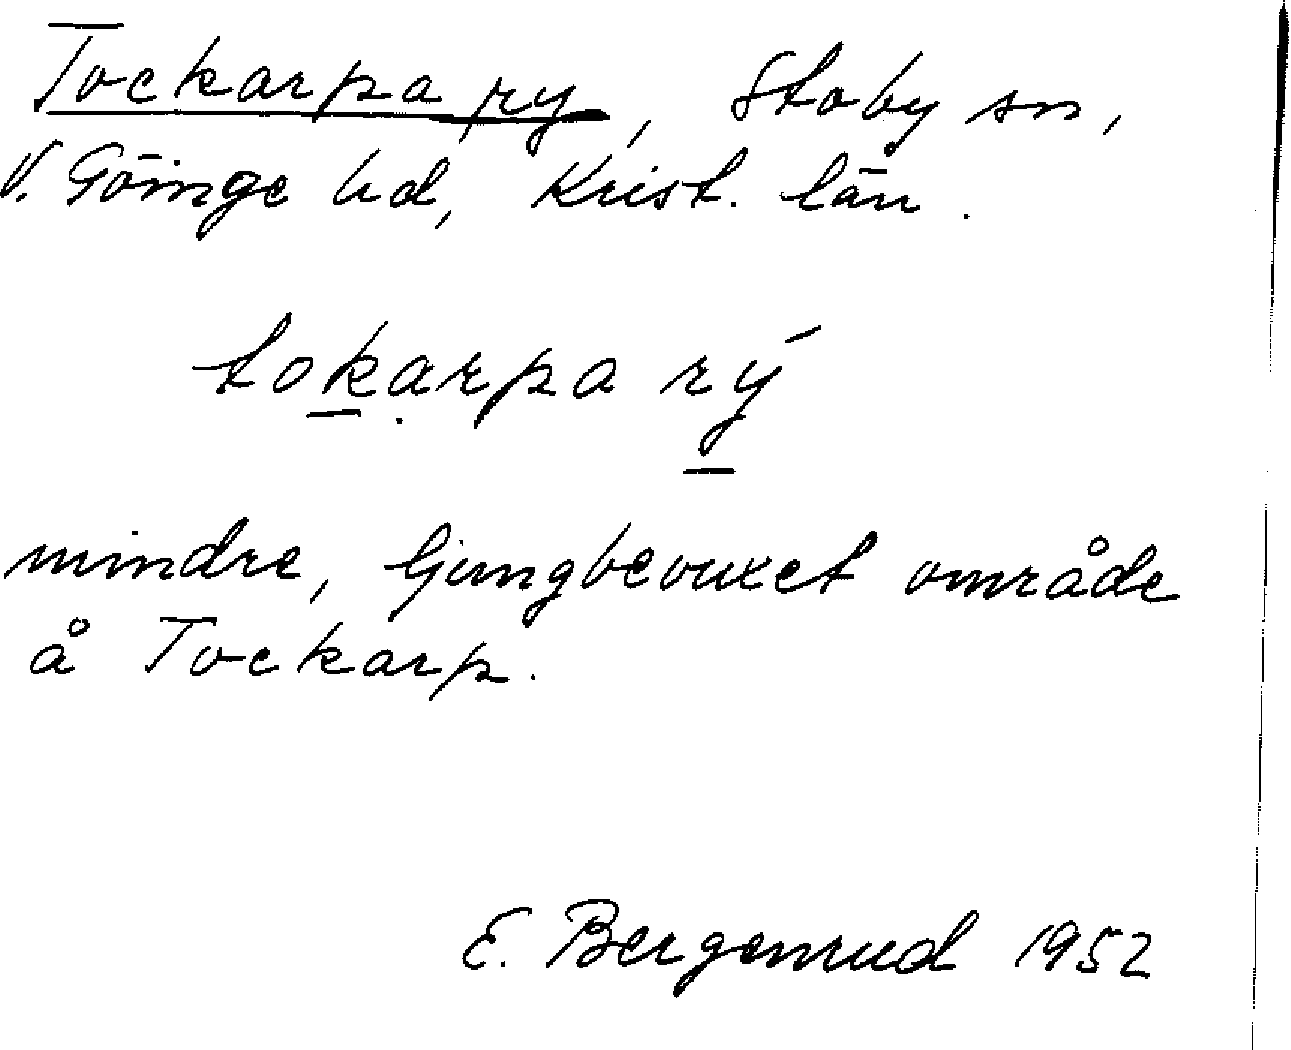 Tockarpa ry, Stoby sn,
V. Göinge hd, Krist. län.
tok̲ạrpa rý̲
mindre, ljungbevuxet område
å Tockarp.
E. Bergenrud 1952